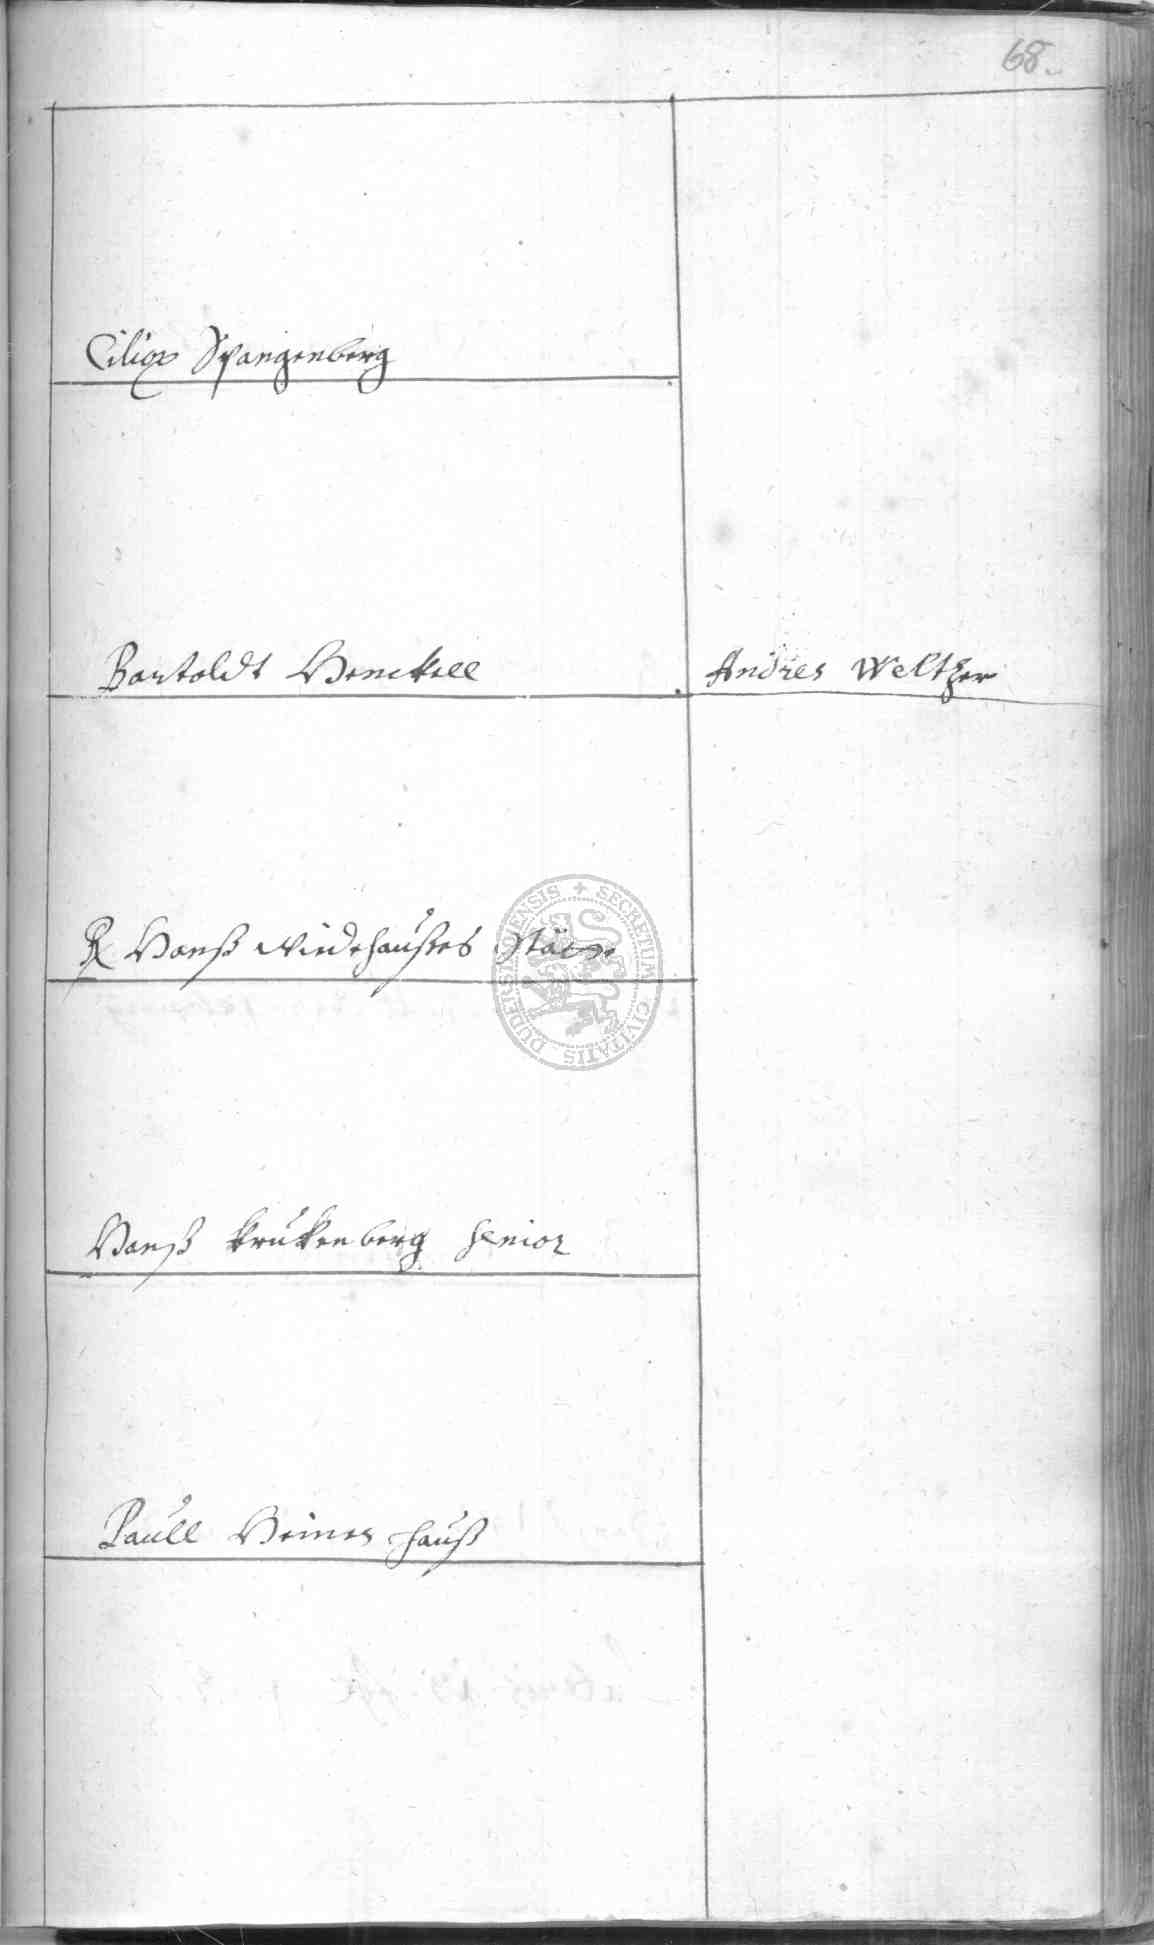 68.
Ciliax Spangenberg
Bartoldt Henckell
Andres Welther
Hanß Niedehaußes
Hanß Krukenberg Senior
Paull Heines hauß
SECRETUM CIVITATIS DUDERSTADENSIS